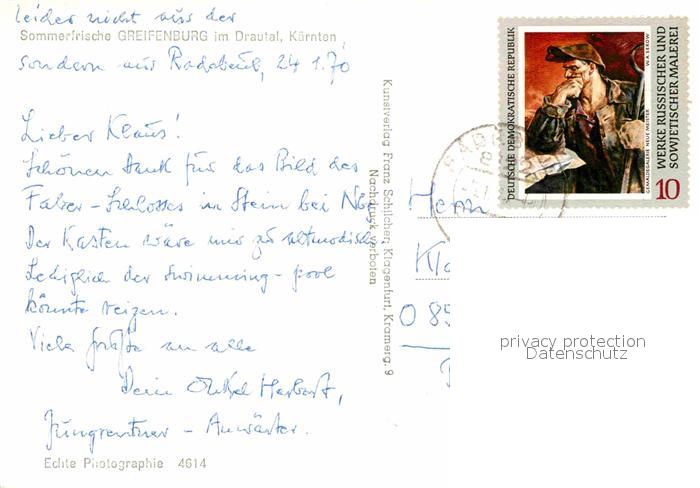 leider nicht aus der
Sommerfrische GREIFENBURG im Drautal, Kärnten
sondern aus Radebeul, 24.1.70
Lieber Klaus!
Schönen Dank für das Bild des
Faber-Schlosses in Stein bei Nbg.
Der Kasten wäre mir zu altmodisch.
Lediglich der Swimming-pool
könnte reizen.
Viele Grüße an alle
Dein Onkel Herbert,
Jungrentner - Anwärter.
Echte Photographie 4614
Kunstverlag Franz Schilcher, Klagenfurt, Kramerg. 9
Nachdruck verboten
DEUTSCHE DEMOKRATISCHE REPUBLIK
W.A. SEROW
GEMÄLDEGALERIE NEUE MEISTER
WERKE RUSSISCHER UND
SOWJETISCHER MALEREI
10
Herrn
Kla
O 89
privacy protection
Datenschutz